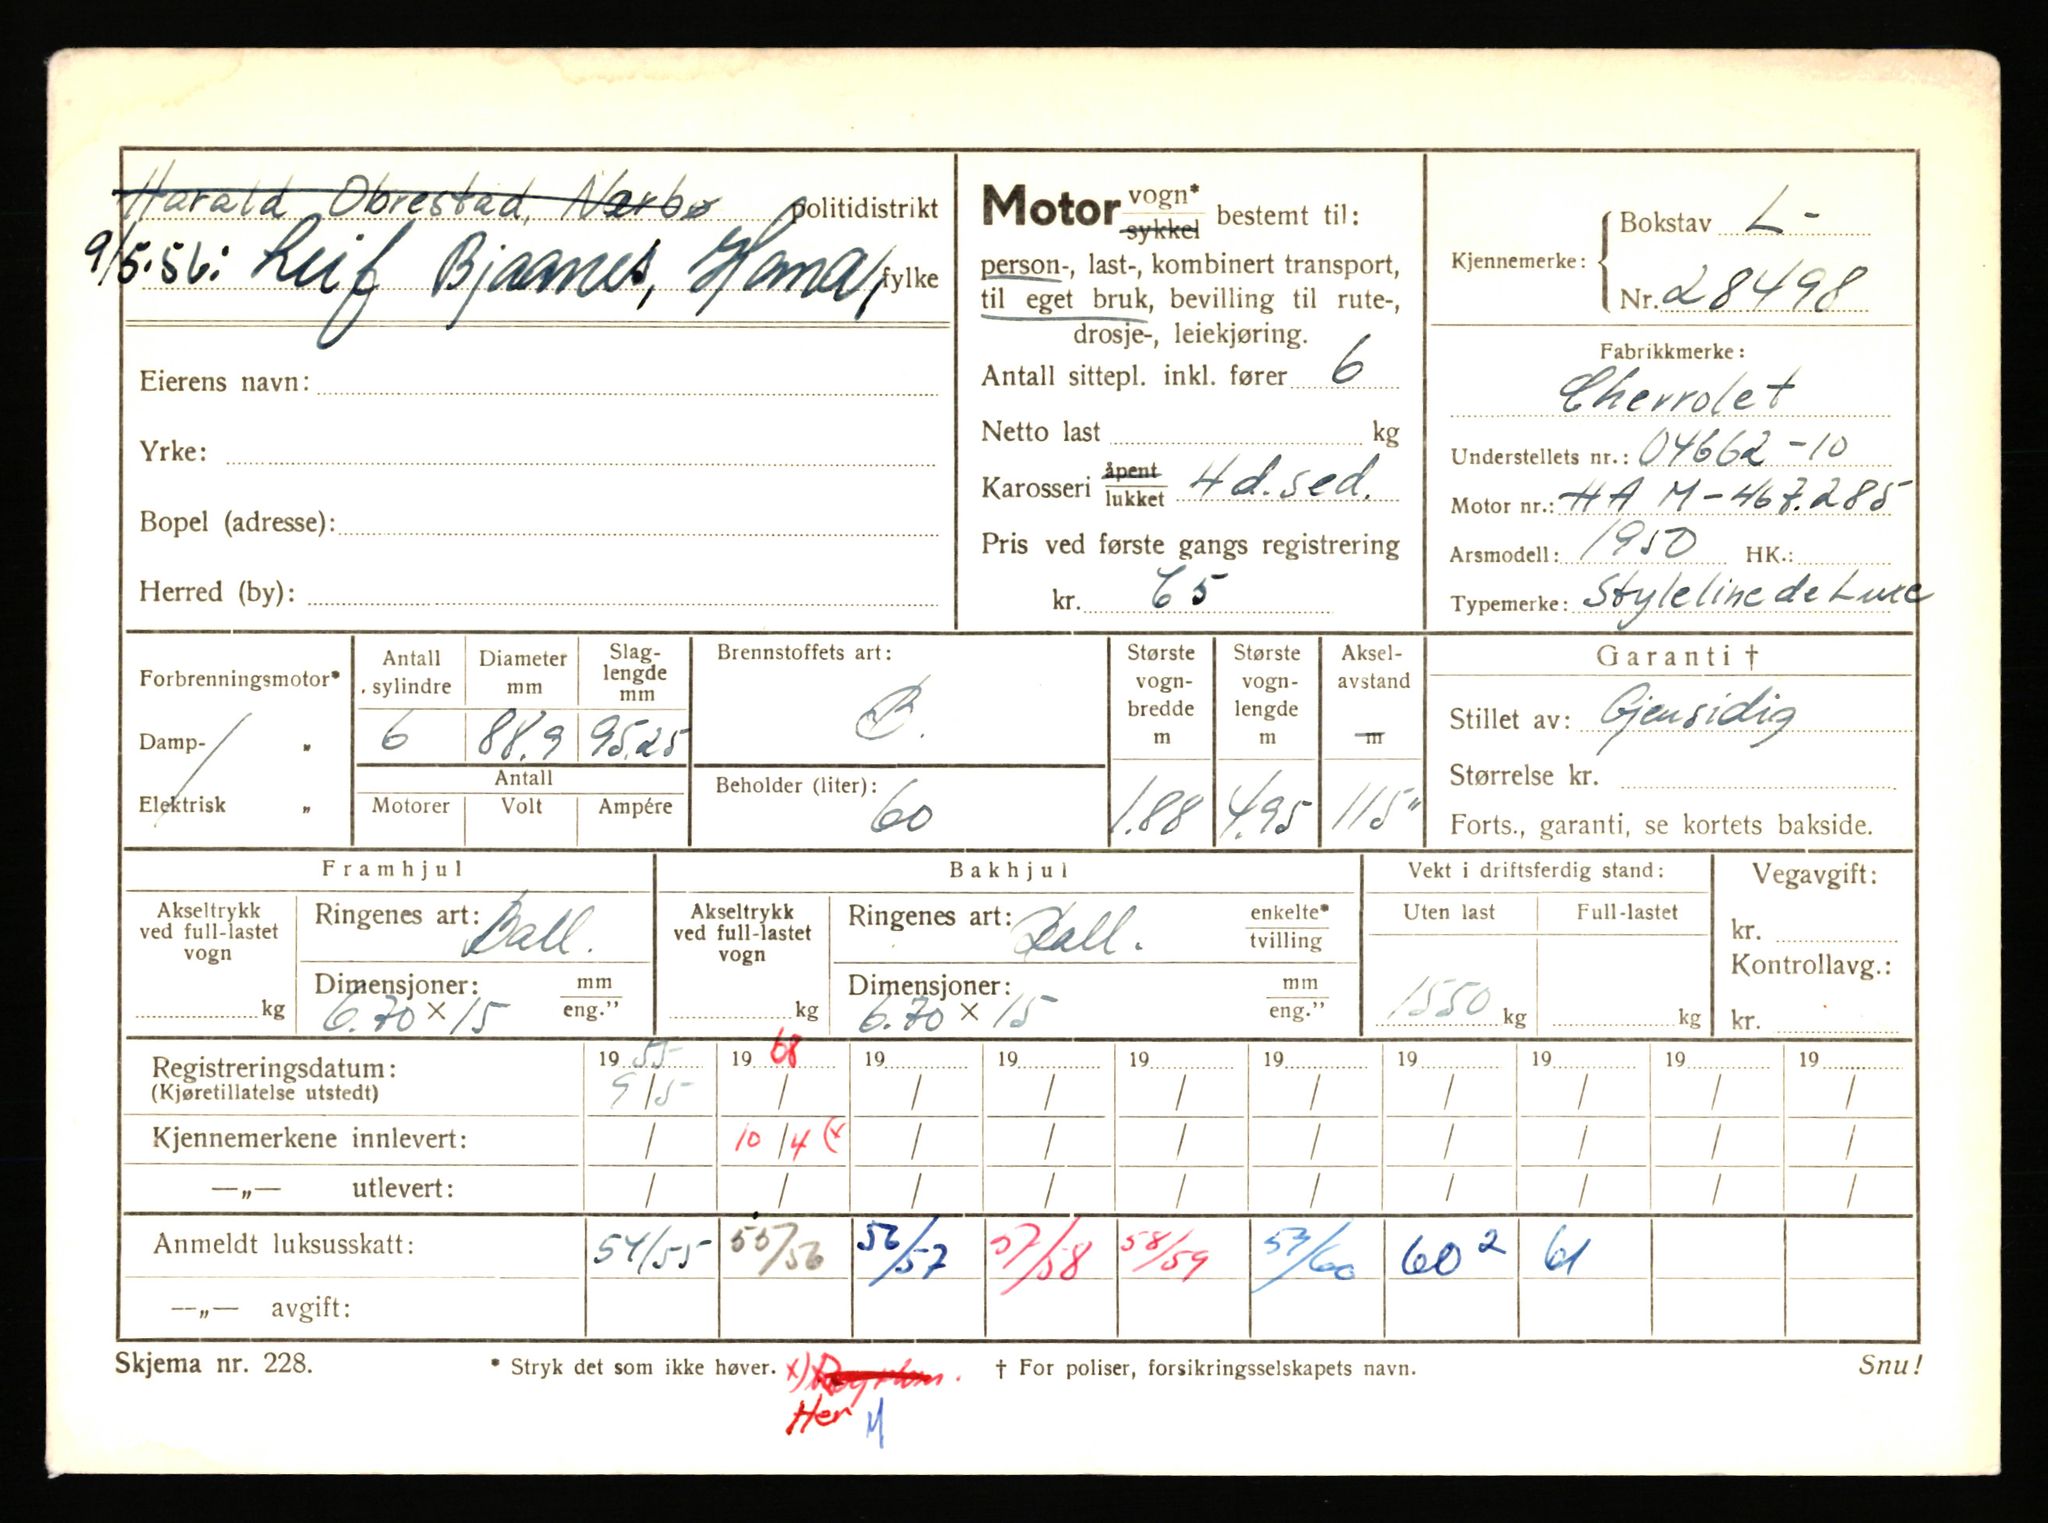 Harald Obrestad, Nærbø politidistrikt
9/5.56: Leif Bjaanes, Hana, fylke
Eierens navn:
Yrke:
Bopel (adresse):
Herred (by):
Motor vogn* sykkel bestemt til:
person-, last-, kombinert transport,
til eget bruk, bevilling til rute-,
drosje-, leiekjøring.
Antall sittepl. inkl. fører 6
Netto last kg
Karosseri åpent lukket 4 d. sed.
Pris ved første gangs registrering
kr. 65
Kjennemerke: Bokstav L-
Nr. 28498
Fabrikkmerke:
Chevrolet
Understellets nr.: 04662-10
Motor nr.: HA M-467.285
Arsmodell: 1950 HK.:
Typemerke: Styleline de Luxe
Forbrenningsmotor*
Damp- „
Elektrisk „
Antall sylindre
6
Diameter mm
88.9
Slag-lengde mm
95.25
Antall
Motorer Volt Ampére
Brennstoffets art:
B.
Beholder (liter):
60
Største vogn-bredde m
1.88
Største vogn-lengde m
4.95
Aksel-avstand m
115"
Garanti †
Stillet av: Gjensidig
Størrelse kr.
Forts., garanti, se kortets bakside.
Framhjul
Akseltrykk ved full-lastet vogn
kg
Ringenes art: Ball.
Dimensjoner: mm eng.”
6.70 × 15
Bakhjul
Akseltrykk ved full-lastet vogn
kg
Ringenes art: Ball. enkelte* tvilling
Dimensjoner: mm eng.”
6.70 × 15
Vekt i driftsferdig stand:
Uten last Full-lastet
1550 kg kg
Vegavgift:
kr.
Kontrollavg.:
kr.
Registreringsdatum: 19 55 19 68 19 19 19 19 19 19 19 19
(Kjøretillatelse utstedt) 9/5 / / / / / / / / /
Kjennemerkene innlevert: / 10/4 (x / / / / / / / /
—„— utlevert: / / / / / / / / / /
Anmeldt luksusskatt: 54/55 55/56 56/57 57/58 58/59 59/60 60 2 61
—„— avgift:
Skjema nr. 228. * Stryk det som ikke høver. x) † For poliser, forsikringsselskapets navn. Snu!
Her M